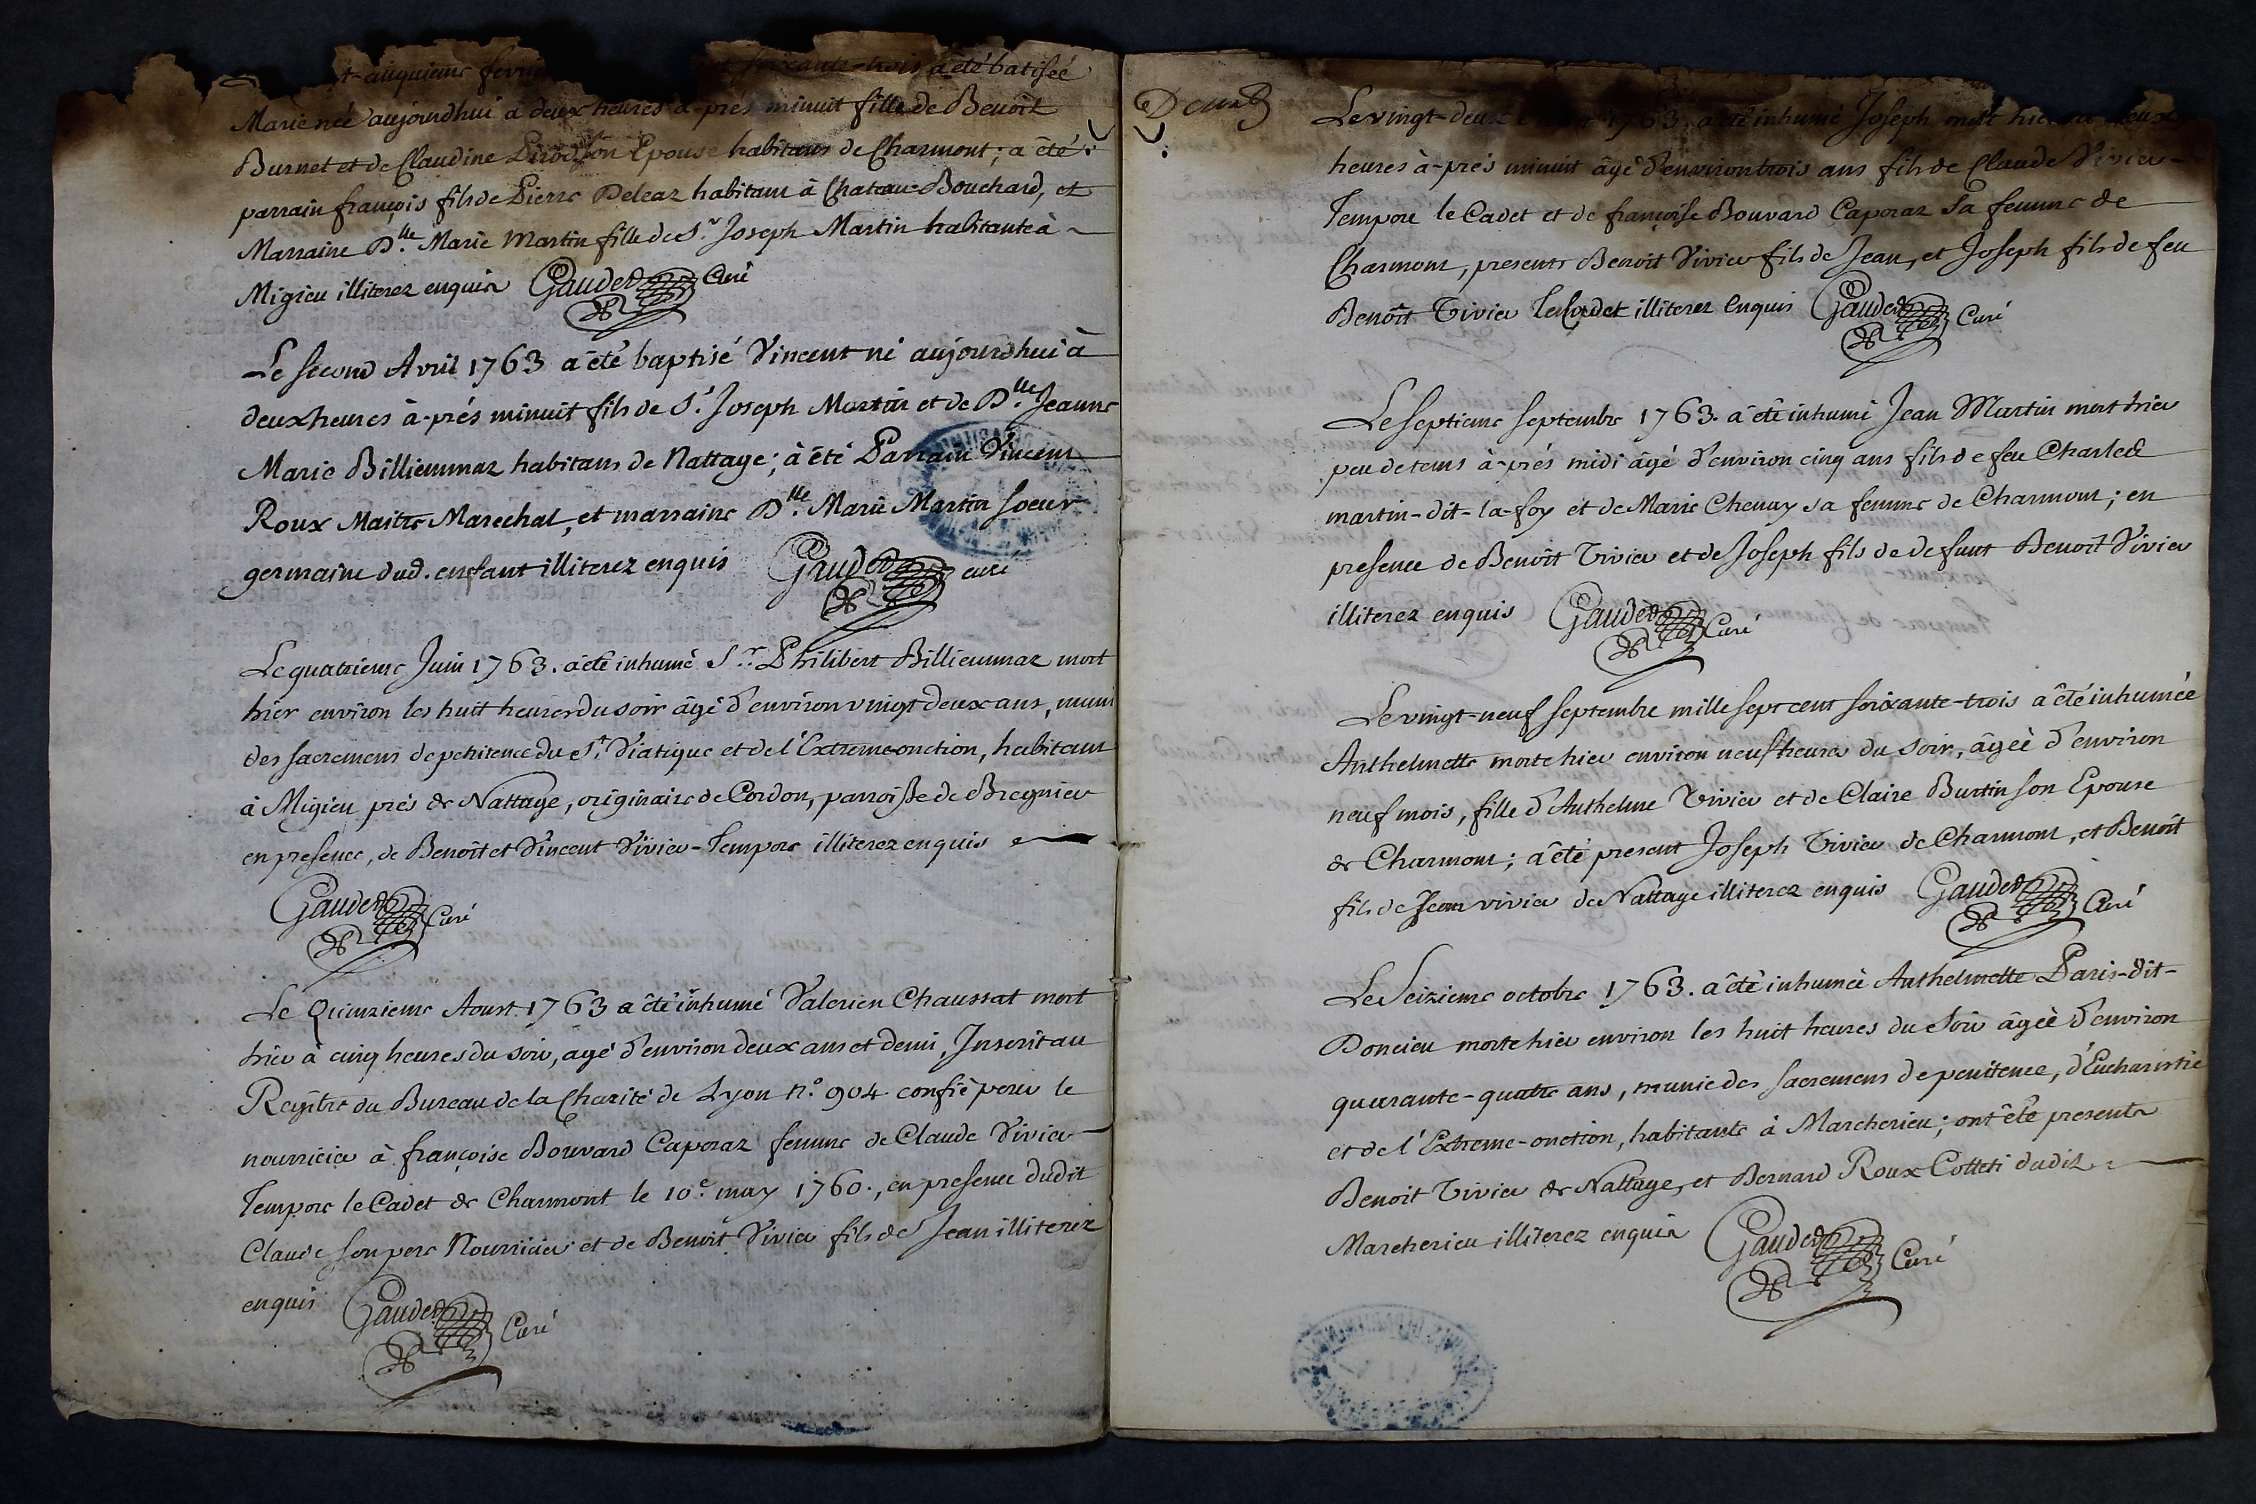 t-cinquieme fevri soixante-trois a été batisée
Marie née aujourdhui a deux heures a-prés minuit fille de Benoît
Burnet et de Claudine Pirod son Epouse habitans de Charmont; a été
parrain françois fils de Pierre Deleaz habitant à Chateau-Bouchard, et
Marraine D.lle Marie Martin fille de S.r Joseph Martin habitante à
Migieu illiterez enquis Gaudet Curé
Le second Avril 1763 a été baptisé Vincent né aujourdhui à
deux heures à-prés minuit fils de S.r Joseph Martin et de D.lle Jeanne
Marie Billiemmaz habitans de Nattage; à été Parrain Vincent
Roux Maitre Marechal, et marraine D.lle Marie Martin soeur
germaine dud. enfant illiterez enquis Gaudet curé
Le quatrieme Juin 1763. a été inhumé S.r Philibert Billiemmaz mort
hier environ les huit heures du soir âgé d'environ vingt deux ans, muni
des sacremens de penitence du S.t Viatique et de l'Extreme-onction, habitant
à Migieu prés de Nattage, originaire de Cordon, parroisse de Bregnier
en presence, de Benoît et Vincent Vivier-Tempore illiterez enquis
Gaudet Curé
Le Quinzieme Aoust. 1763 a été inhumé Valerien Chaussat mort
hier à cinq heures du soir, agé d'environ deux ans et demi, Inscrit au
Regître du Bureau de la Charité de Lyon n.o 904 confié pour le
nourricier à françoise Bouvard Caporaz femme de Claude Vivier
Tempore le Cadet de Charmont le 10.e may 1760., en presence dudit
Claude son pere Nourricier et de Benoit Vivier fils de Jean illiterez
enquis Gaudet Curé
Deux
Le vingt-deux 1763. a été inhumé Joseph mort hier a deux
heures à-prés minuit âgé d'environ trois ans fils de Claude Vivier
Tempore le Cadet et de françoise Bouvard Caporaz sa femme de
Charmont, presents Benoit Vivier fils de Jean, et Joseph fils de feu
Benoît Vivier le Cadet illiterez enquis Gaudet Curé
Le septieme septembre 1763. a été inhumé Jean Martin mort hier
peu de tems à-prés midi âgé d'environ cinq ans fils de feu Charles
martin-dit-la-foy et de Marie Chenay sa femme de Charmont; en
presence de Benoît Vivier et de Joseph fils de defunt Benoît Vivier
illiterez enquis Gaudet Curé
Le vingt-neuf septembre mille sept cent soixante-trois a été inhumée
Anthelmette morte hier environ neuf heures du soir, âgée d'environ
neuf mois, fille d'Anthelme Vivier et de Claire Burtin son Epouse
de Charmont; a été present Joseph Vivier de Charmont, et Benoît
fils de Jean vivier de Nattage illiterez enquis Gaudet Curé
Le Seizieme octobre 1763. a été inhumée Anthelmette Paris-dit-
Doncieu morte hier environ les huit heures du soir âgée d'environ
quarante-quatre ans, munie des sacremens de penitence, d'Eucharistie
et de l'Extreme-onction, habitante à Marcherieu; ont été presents
Benoit Vivier de Nattage, et Bernard Roux Colleti dudit
Marcherieu illiterez enquis Gaudet Curé